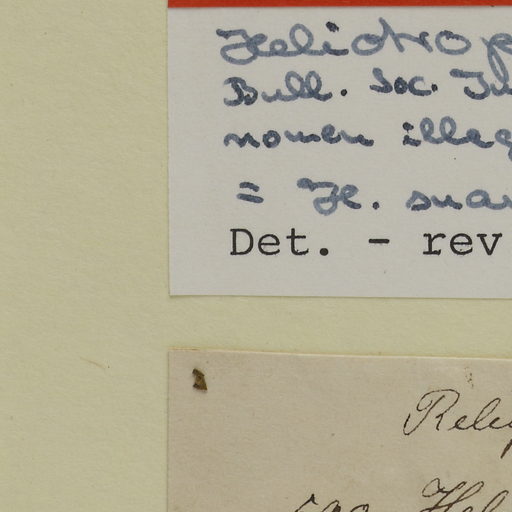 Heliotrop
Bull. Soc.
nomen illeg
= H. suav
Det. - rev
Hel